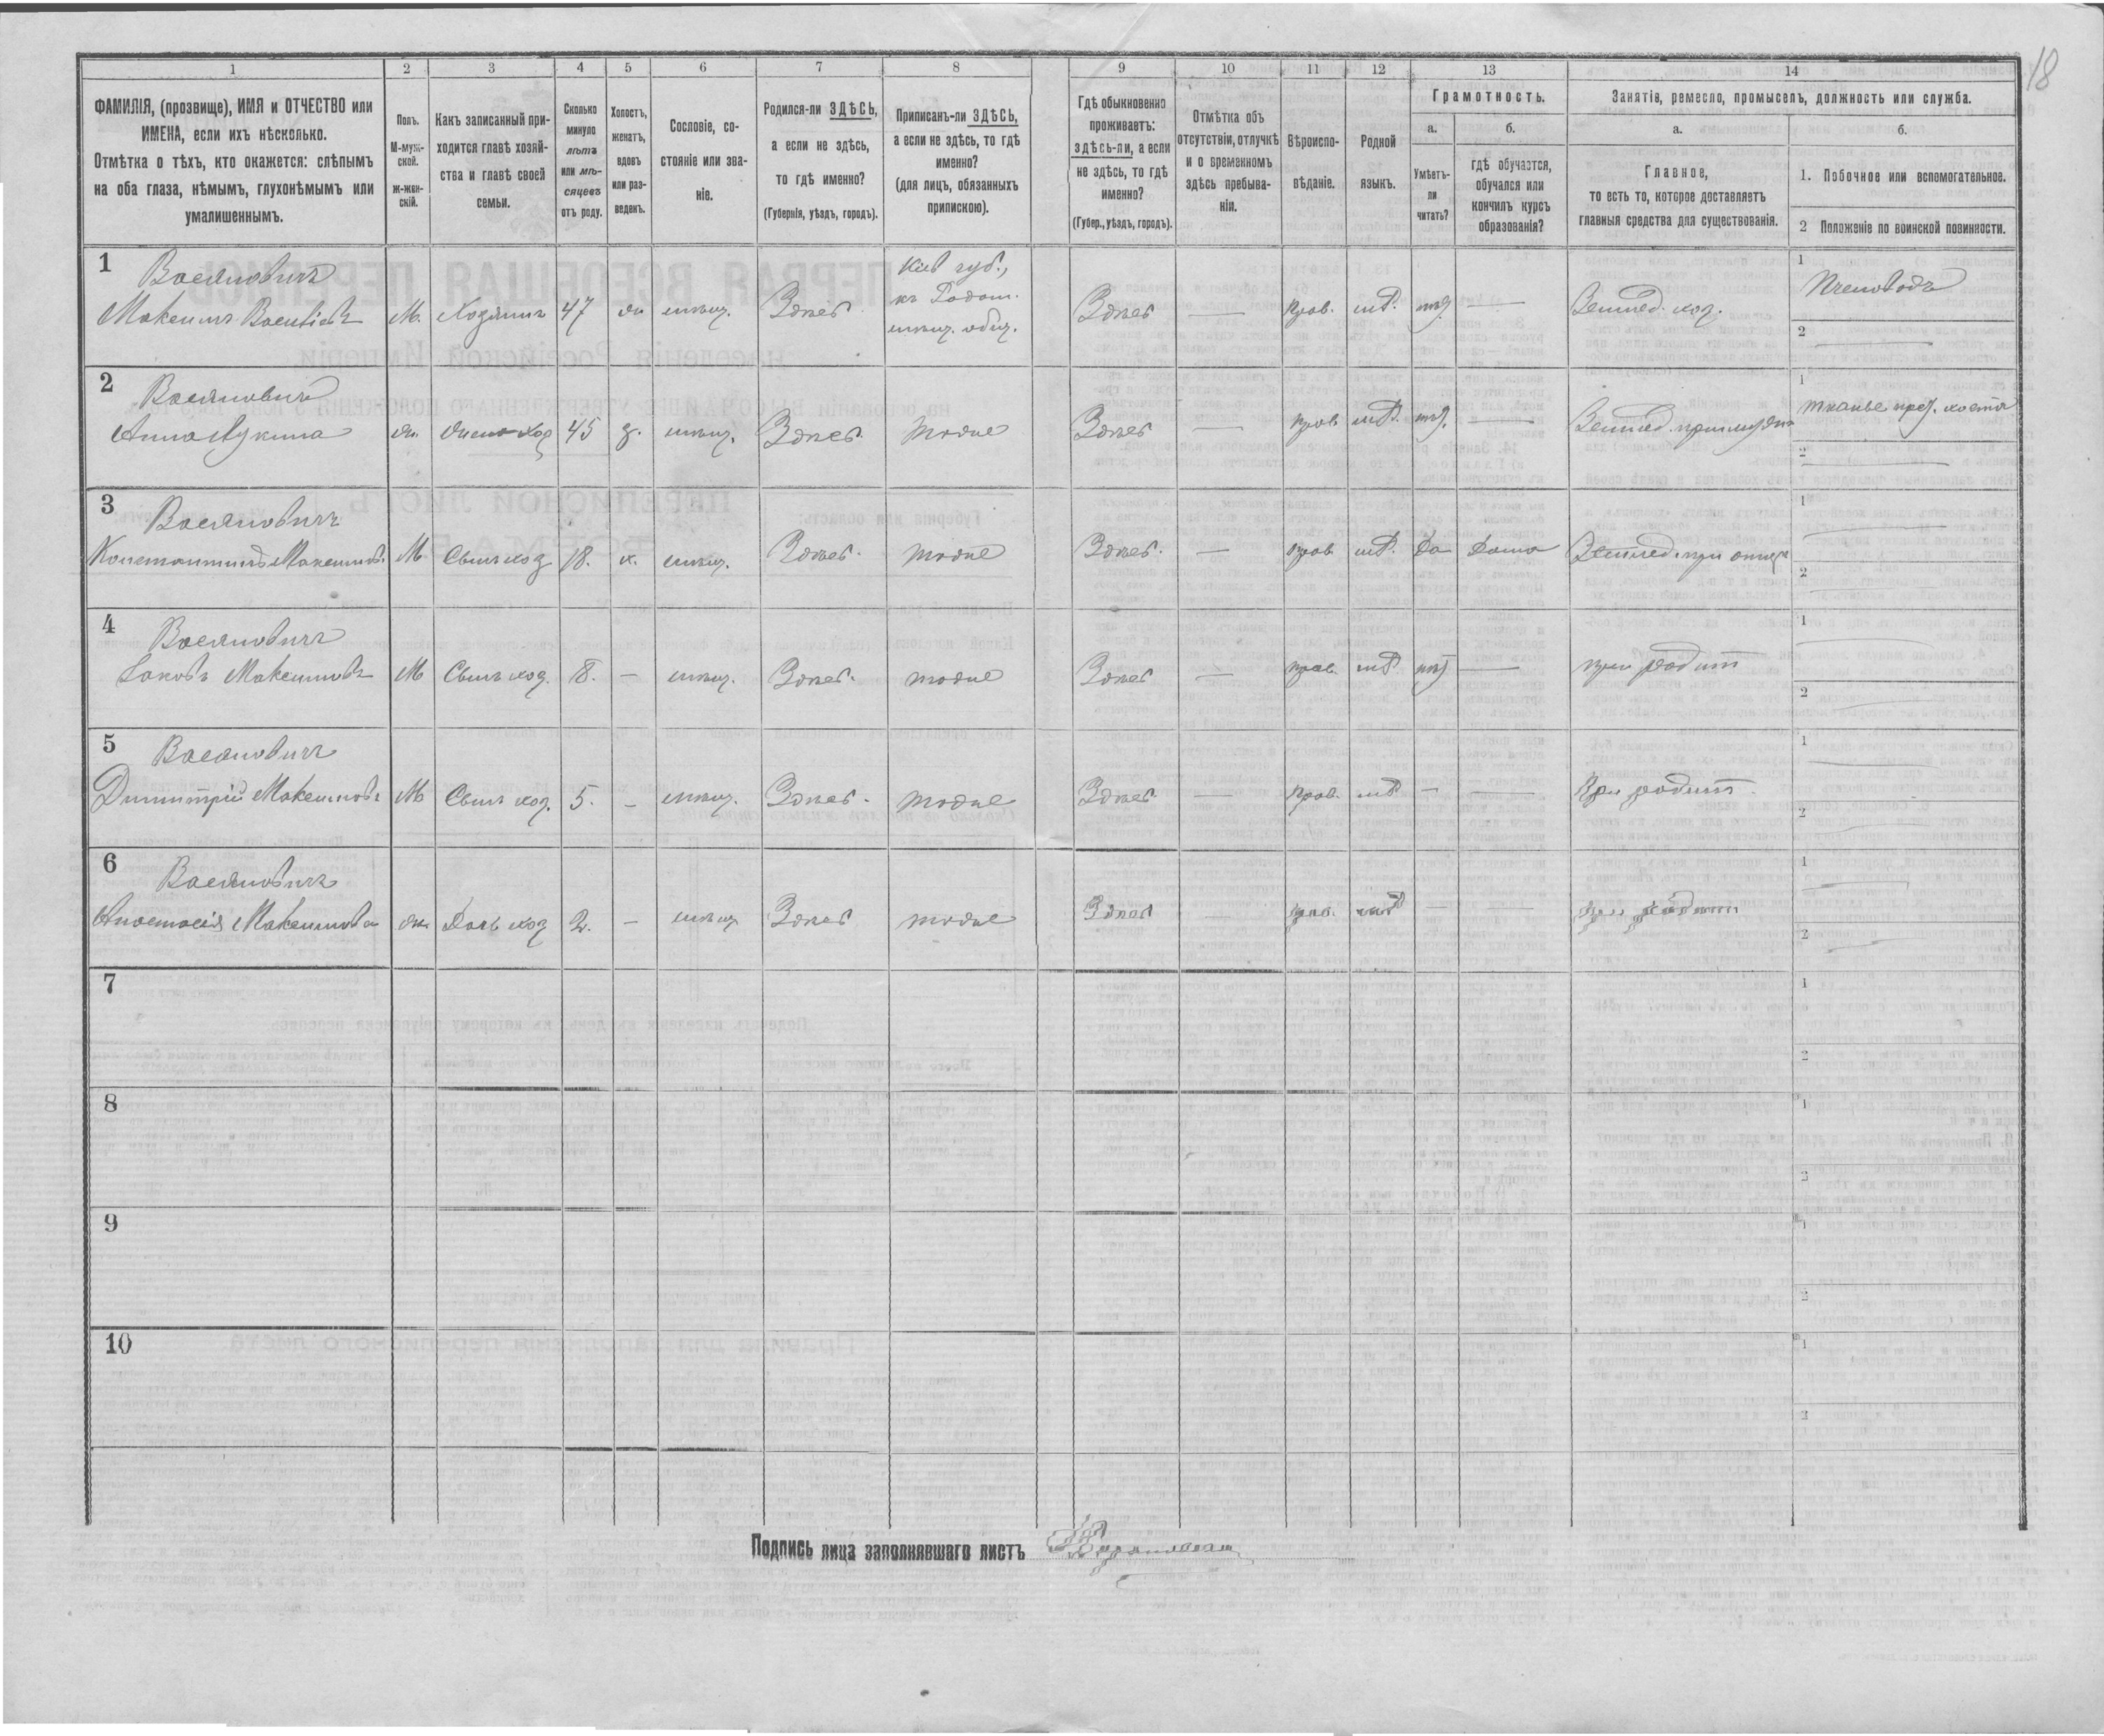 18
1 2 3 4 5 6 7 8 9 10 11 12 13 14
ФАМИЛІЯ, (прозвище), ИМЯ и ОТЧЕСТВО или
ИМЕНА, если ихъ нѣсколько.
Отмѣтка о тѣхъ, кто окажется: слѣпымъ
на оба глаза, нѣмымъ, глухонѣмымъ или
умалишеннымъ.
Полъ.
М-муж-
ской.
ж-жен-
скій.
Какъ записанный при-
ходится главѣ хозяй-
ства и главѣ своей
семьи.
Сколько
минуло
лѣтъ
или мѣ-
сяцевъ
отъ роду.
Холостъ,
женатъ,
вдовъ
или раз-
веденъ.
Сословіе, со-
стояніе или зва-
ніе.
Родился-ли ЗДѢСЬ,
а если не здѣсь,
то гдѣ именно?
(Губернія, уѣздъ, городъ).
Приписанъ-ли ЗДѢСЬ,
а если не здѣсь, то гдѣ
именно?
(для лицъ, обязанныхъ
припискою).
Гдѣ обыкновенно
проживаетъ:
здѣсь-ли, а если
не здѣсь, то гдѣ
именно?
(Губер., уѣздъ, городъ).
Отмѣтка объ
отсутствіи, отлучкѣ
и о временномъ
здѣсь пребыва-
ніи.
Вѣроиспо-
вѣданіе.
Родной
языкъ.
Грамотность.
а.
Умѣетъ-
ли
читать?
б.
гдѣ обучается,
обучался или
кончилъ курсъ
образованія?
Занятіе, ремесло, промыселъ, должность или служба.
а.
Главное,
то есть то, которое доставляетъ
главныя средства для существованія.
б.
1. Побочное или вспомогательное.
2 Положеніе по воинской повинности.
1
Васяновичъ
Максимъ
М. Хозяинъ 47 мѣщ. Здѣсь
Кіев губ.,
мѣщ. общ.
Здѣсь — прав. Землед. хоз.
1 Пчеловодъ
2 —
2
Васяновичъ
Анна Лукина
45 з. мѣщ. Здѣсь тоже Здѣсь — прав. — Землед.
1 тканье
2 —
3
Васяновичъ
Константинъ Максимов.
М Сынъ хоз 18. х. мѣщ. Здѣсь. тоже Здѣсь. — прав. да дома Землед. при отцѣ
1 —
2 —
4
Васяновичъ
Іаковъ Максимовъ
М Сынъ хоз. 8. — мѣщ. Здѣсь. тоже Здѣсь — прав. — при родит
1 —
2 —
5
Васяновичъ
Димитрій Максимовъ
М Сынъ хоз. 5. — мѣщ. Здѣсь. тоже Здѣсь — прав. — — При родит.
1 —
2 —
6
Васяновичъ
Анастасія Максимова
Дочь хоз 2. — мѣщ Здѣсь тоже Здѣсь — прав. — — при родит
1 —
2 —
7
1
2
8
1
2
9
1
2
10
1
2
Подпись лица заполнявшаго листъ